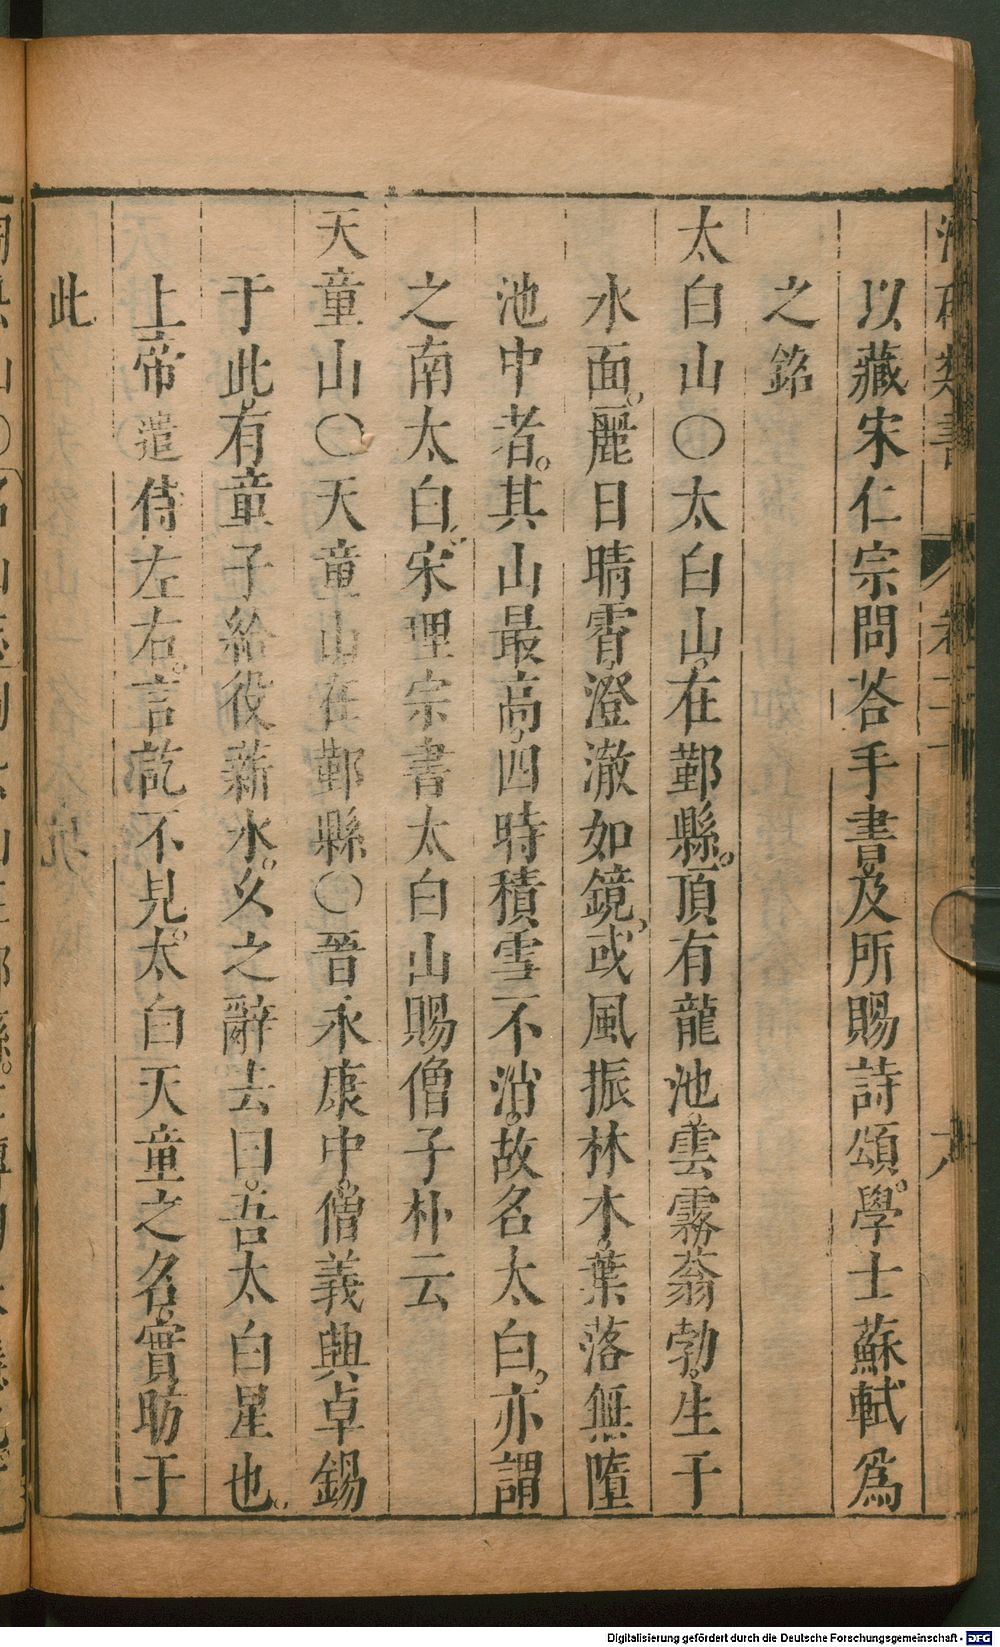 以藏宋仁宗問荅手書及所賜詩頌。學士蘇軾爲
之銘
太白山○太白山。在鄞縣。頂有龍池。雲霧蓊勃。生于
水面。麗日晴霄。澄澈如鏡。或風振林木。葉落無墮
池中者。其山最高。四時積雪不消。故名太白。亦謂
之南太白。宋理宗書太白山賜僧子朴云
天童山○天童山。在鄞縣○晉永康中。僧義興卓錫
于此。有童子給役薪水。久之辭去曰。吾太白星也。
上帝遣侍左右。言訖不見。太白天童之名。實昉于
此
Digitalisierung gefördert durch die Deutsche Forschungsgemeinschaft - DFG